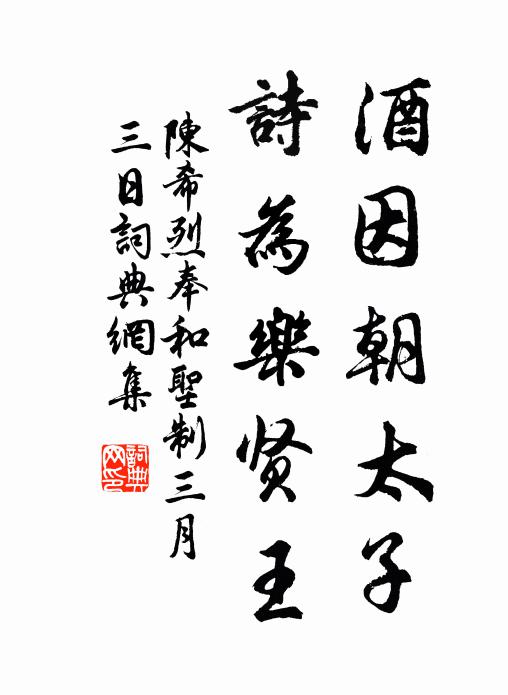 酒因朝太子
詩為樂贤王
陳希烈奉和聖制三月
三日詞典網集
詞典网印